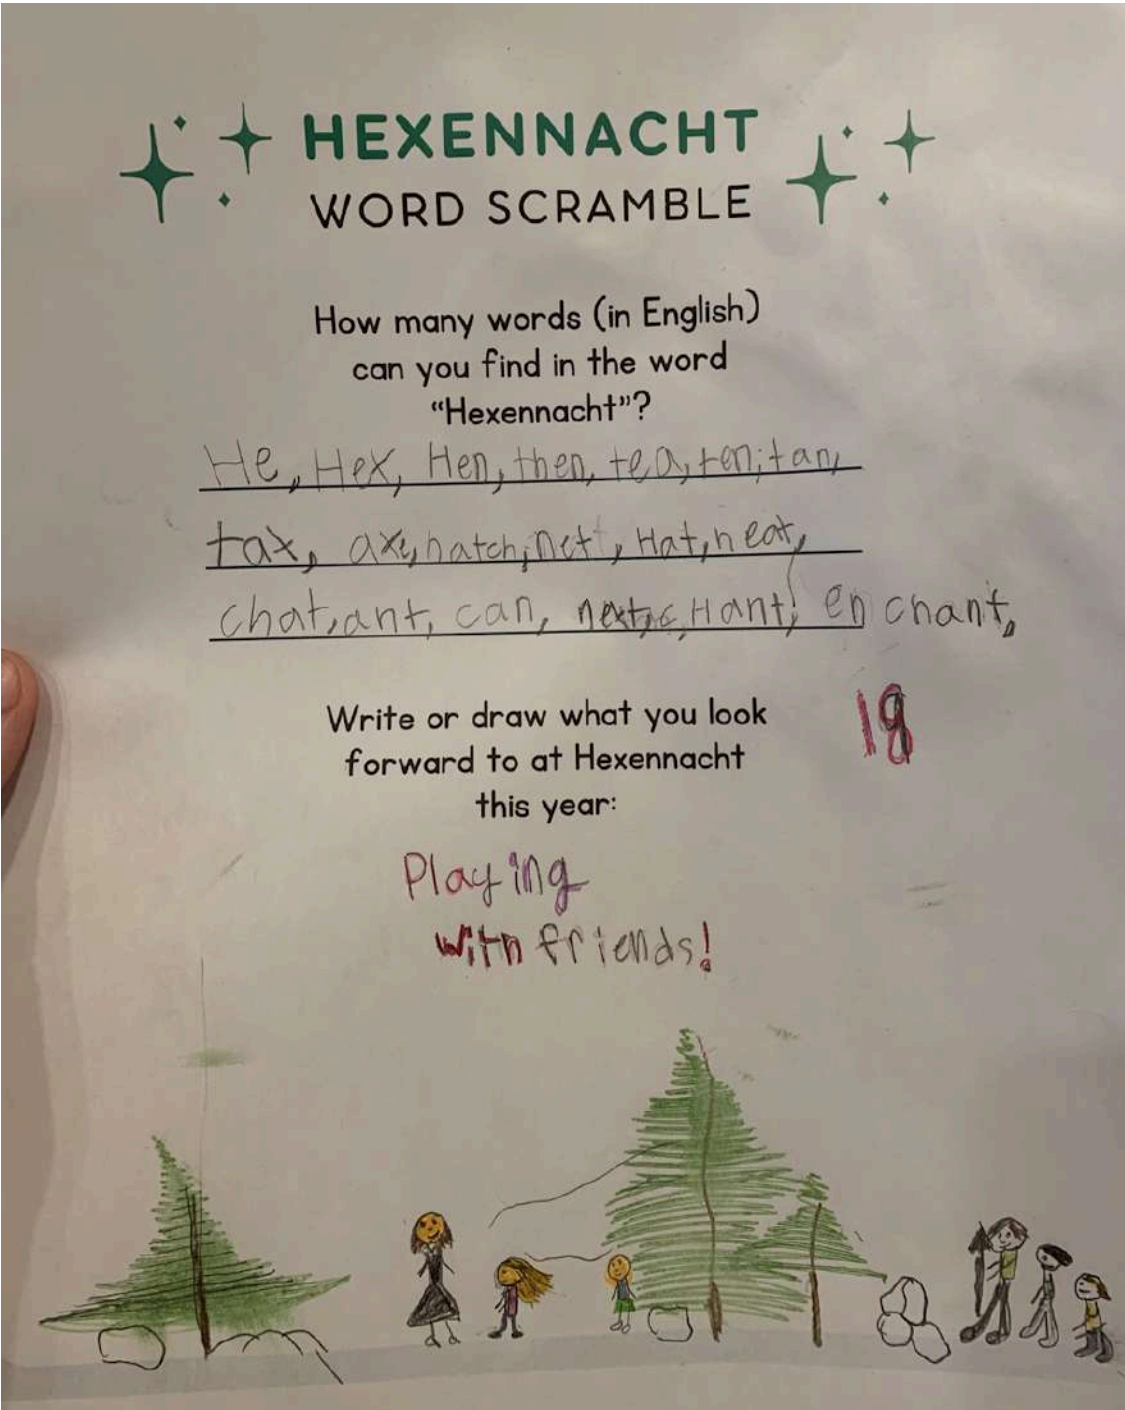 HEXENNACHT
WORD SCRAMBLE
How many words (in English)
can you find in the word
“Hexennacht”?
He, Hex, Hen, then, tea, ten, tan,
tax, axe, hatch, net, Hat, neat,
chat, ant, can, next, c, Hant, en chant,
Write or draw what you look
forward to at Hexennacht
this year:
Playing
with friends!